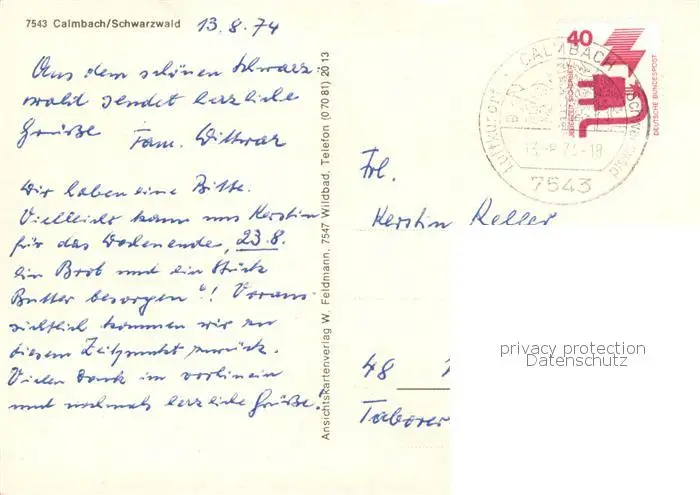 7543 Calmbach/Schwarzwald
13.8.74
Aus dem schönen Schwarz-
wald sendet herzliche
Grüße Fam. Wittwar
Wir haben eine Bitte.
Vielleicht kann uns Kerstin
für das Wochenende, 23.8.
ein Brot und ein Stück
Butter besorgen"! Voraus-
sichtlich kommen wir zu
diesem Zeitpunkt zurück.
Vielen Dank im vorhinein
und nochmals herzliche Grüße!
Ansichtskartenverlag W. Feldmann, 7547 Wildbad, Telefon (0 70 81) 20 13
40
JEDERZEIT SICHERHEIT
DEUTSCHE BUNDESPOST
CALMBACH
Luftkurort
13.-8.74-18
7543
Frl.
Kerstin Keller
48
Taborer
privacy protection
Datenschutz